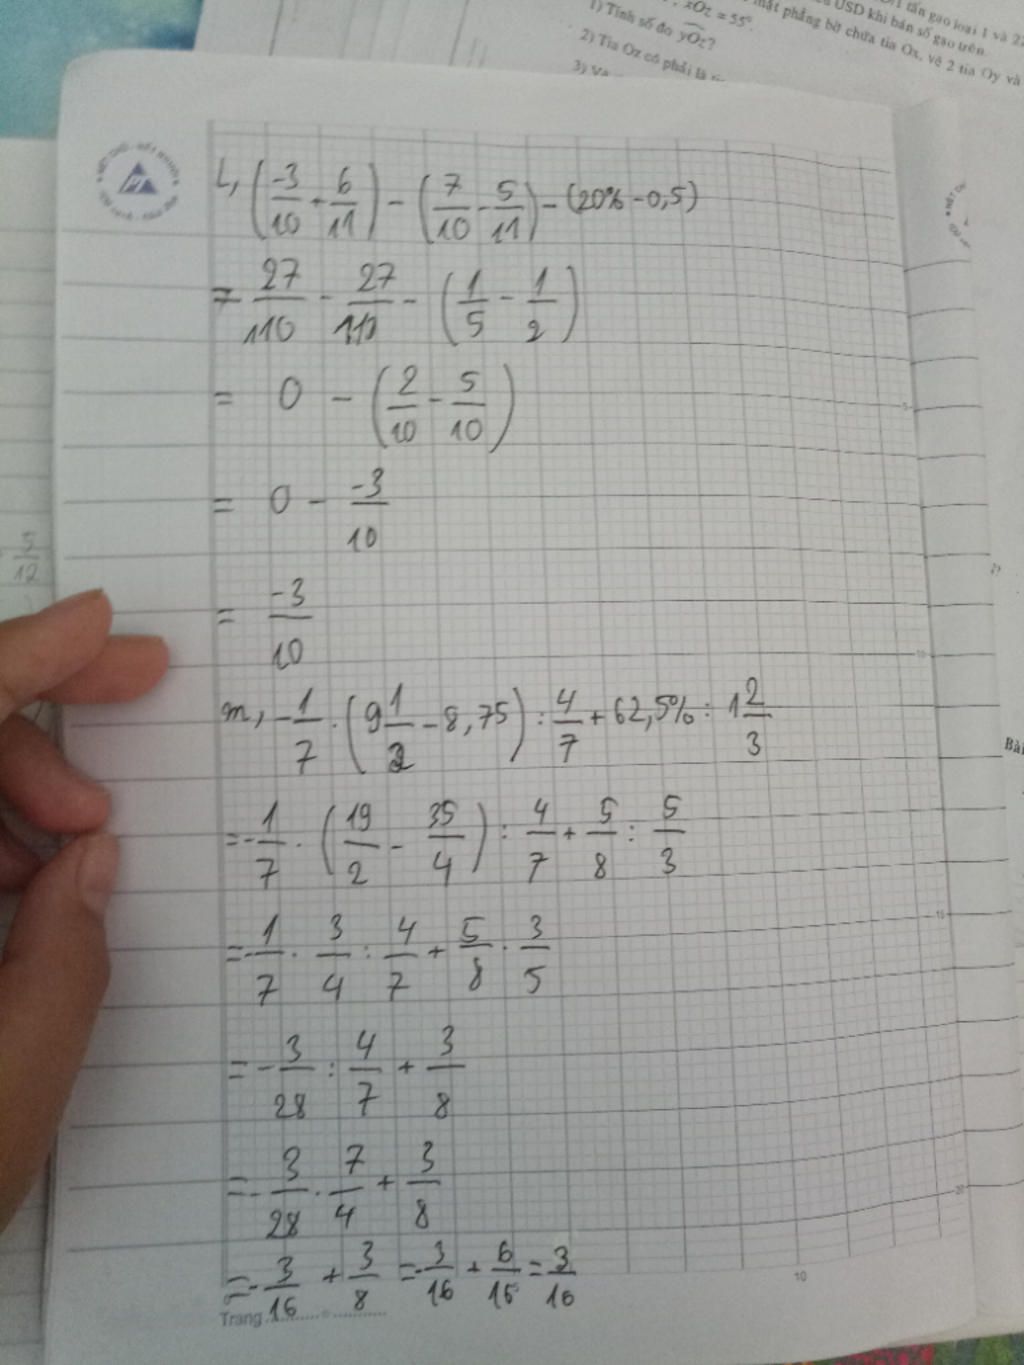 xOz = 55°.
1) Tính số đo yOz?
2) Tia Oz có phải là
tấn gạo loại 1 và 2
USD khi bán số gạo trên.
mặt phẳng bờ chứa tia Ox, vẽ 2 tia Oy và
L, (-3/10 + 6/11) - (7/10 - 5/11) - (20% - 0,5)
= 27/110 - 27/110 - (1/5 - 1/2)
= 0 - (2/10 - 5/10)
= 0 - -3/10
= -3/10
m, -1/7 . (9 1/2 - 8,75) : 4/7 + 62,5% : 1 2/3
= -1/7 . (19/2 - 35/4) : 4/7 + 5/8 : 5/3
= -1/7 . 3/4 : 4/7 + 5/8 . 3/5
= -3/28 : 4/7 + 3/8
= -3/28 . 7/4 + 3/8
= -3/16 + 3/8 = -3/16 + 6/16 = 3/16
Trang
5
10
15
20
10
5/12
Bài